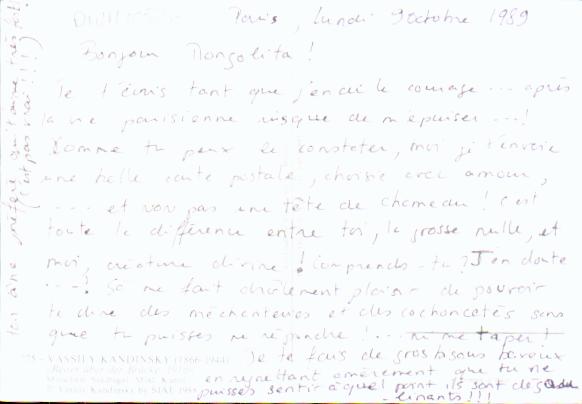 Paris, Lundi 9 octobre 1989
Bonjour Mongolita !
Je t'écris tant que j'en ai le courage ... après
la vie parisienne risque de m'épuiser ...!
Comme tu peux le constater, moi je t'envoie
une belle carte postale, choisie avec amour,
... et non pas une tête de chameau ! C'est
toute la différence entre toi, la grosse nulle, et
moi, créature divine ! Comprends-tu ? J'en doute
...! Ça me fait drôlement plaisir de pouvoir
te dire des méchancetés et des cochoncetés sans
que tu puisses me répondre ! .. ni me taper !
VASSILY KANDINSKY (1866-1944)
Je te fais de gros bisous baveux
en regrettant amèrement que tu ne
puisses sentir à quel point ils sont dégou
-linants !!!
ton âne
qui t'aime très fort
(c'est pas vrai !!!!)